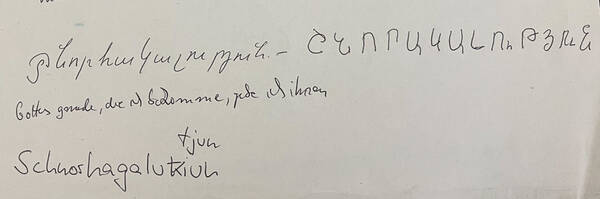 շնորհակալություն. – ՇՆՈՐԱԿԱԼՈւԹՅՈւՆ
Gottes gnade, die ich bekomme, ich ihnen
tjun
Schnorhagalutiun